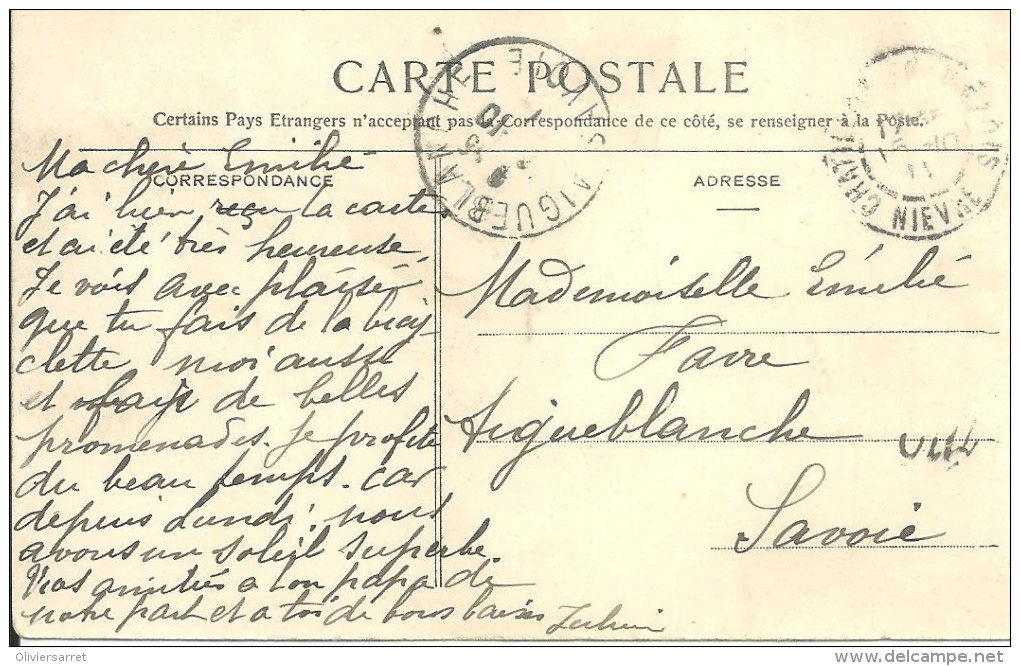 CARTE POSTALE
Certains Pays Etrangers n'acceptant pas la Correspondance de ce côté, se renseigner à la Poste.
CORRESPONDANCE
Ma chère Emilie
J'ai bien reçu la carte
et ai été très heureuse.
Je vois avec plaisir
que tu fais de la bicy
clette moi aussi
et fais de belles
promenades. Je profite
du beau temps. car
depuis Lundi, nous
avons un soleil superbe.
amitiés a ton papa de
notre part et a toi de bons baisers
ADRESSE
Mademoiselle Emilie
Favre
Aigueblanche
Savoie
AIGUEBLANCHE
SAVOIE
NIEVRE
11
© Oliviersarret
www.delcampe.net